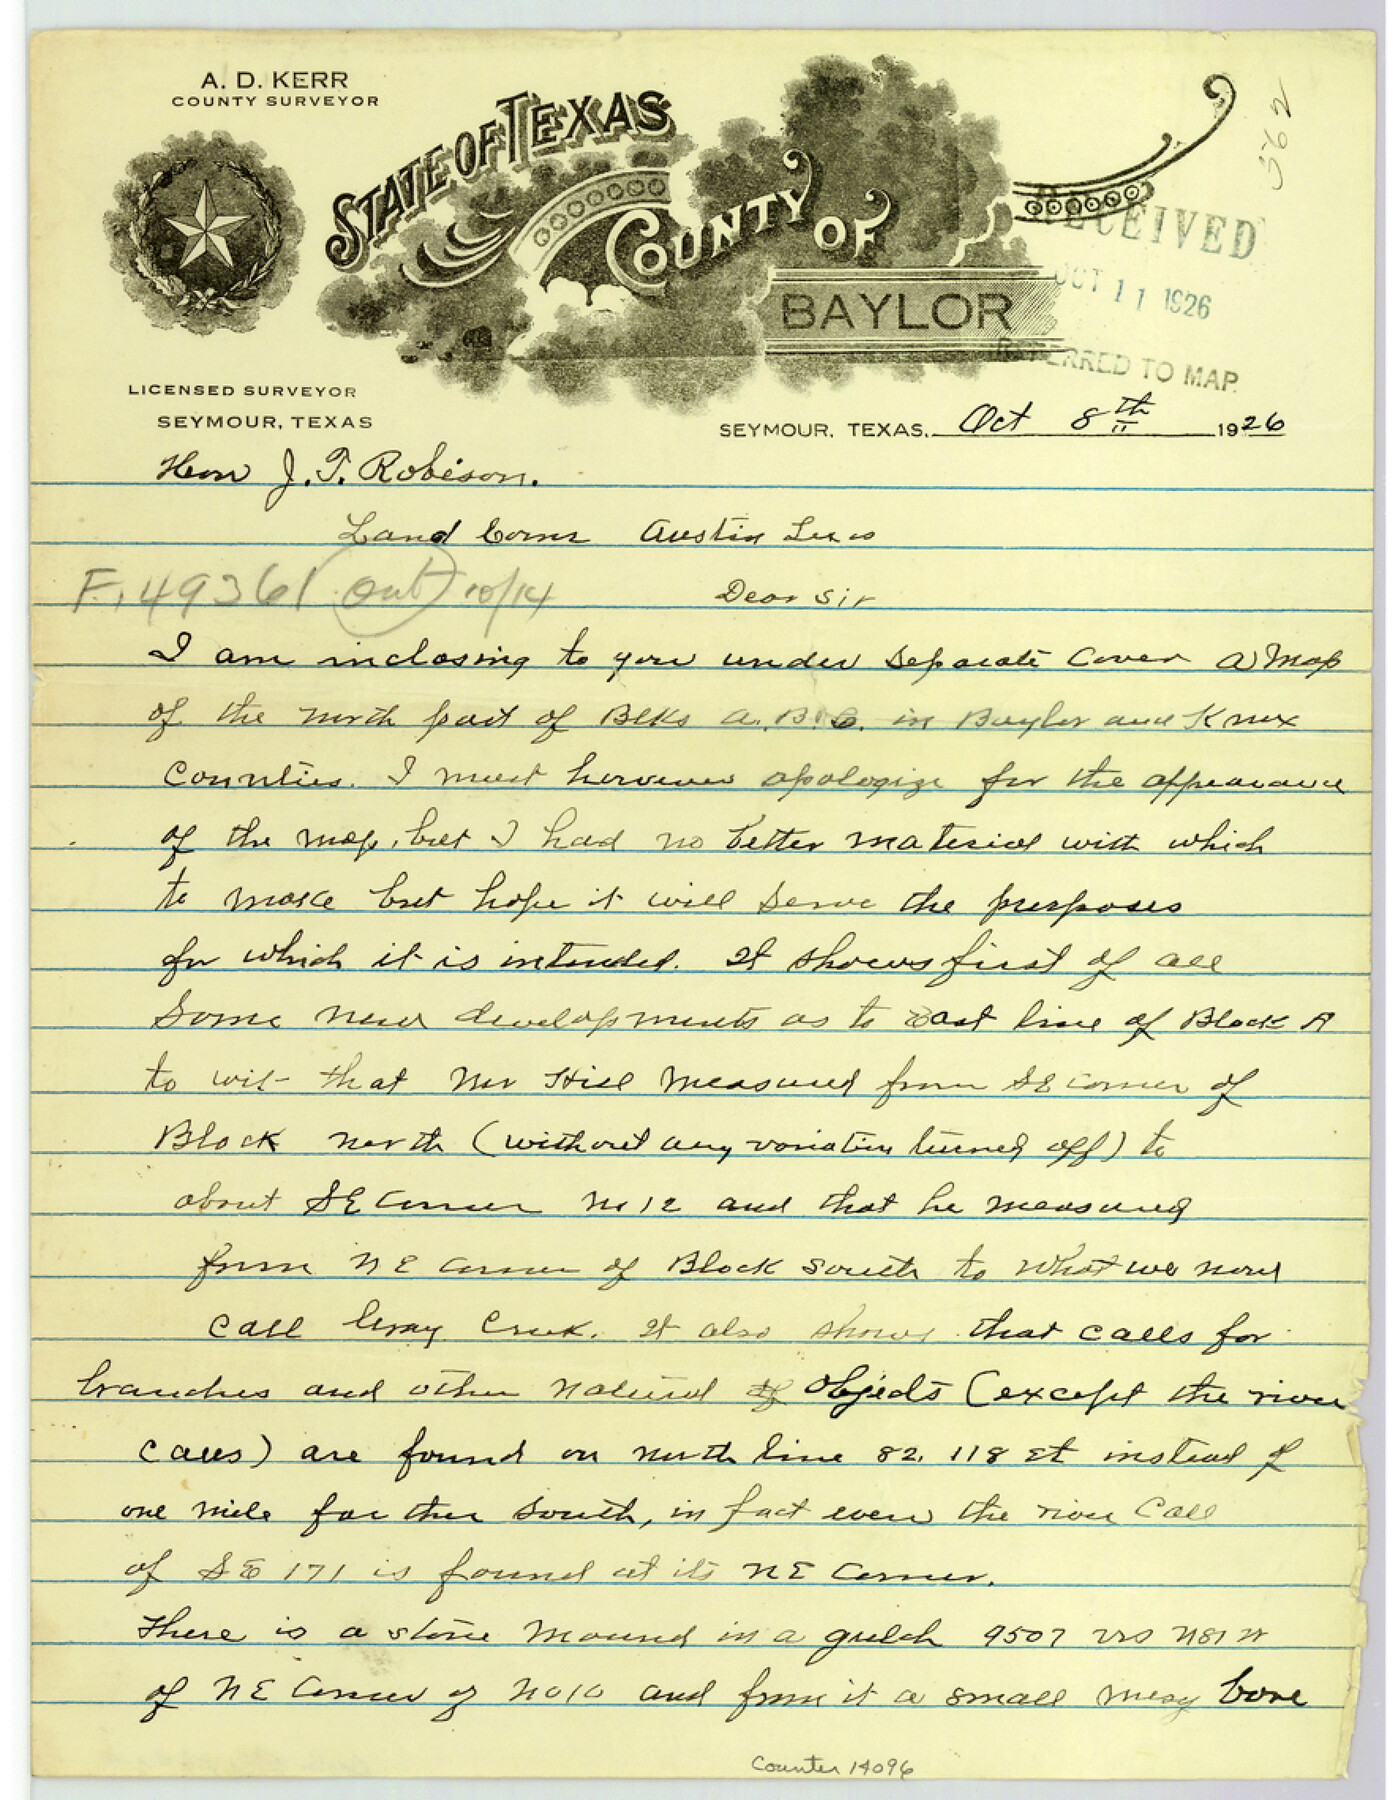 A. D. KERR
COUNTY SURVEYOR
STATE OF TEXAS
COUNTY OF
BAYLOR
562
RECEIVED
OCT 11 1926
REFERRED TO MAP
LICENSED SURVEYOR
SEYMOUR, TEXAS
SEYMOUR, TEXAS, Oct 8th 1926
Hon J. T. Robison.
Land Comr Austin Texas
F. 49361 (out) 10/14
Dear Sir
I am inclosing to you under seperate cover a map
of the north part of Blks A. B & C. in Baylor and Knox
counties. I must however apologize for the appearance
of the map, but I had no better material with which
to make but hope it will serve the purposes
for which it is intended. It shows first of all
some new developments as to East line of Block A
to wit- that Mr Hill measured from SE corner of
Block north (without any variation turned off) to
about SE corner No 12 and that he measured
from NE corner of Block south to what we now
call Creek. It also shows that calls for
branches and other natural of objects (except the river
calls) are found on north line 82, 118 Et instead of
one mile farther south, in fact even the river call
of 171 is found at its NE Corner.
There is a stone mound in a gulch 9507 vrs N81 W
of NE Corner of No10 and from it a small mesq bore
Counter 14096